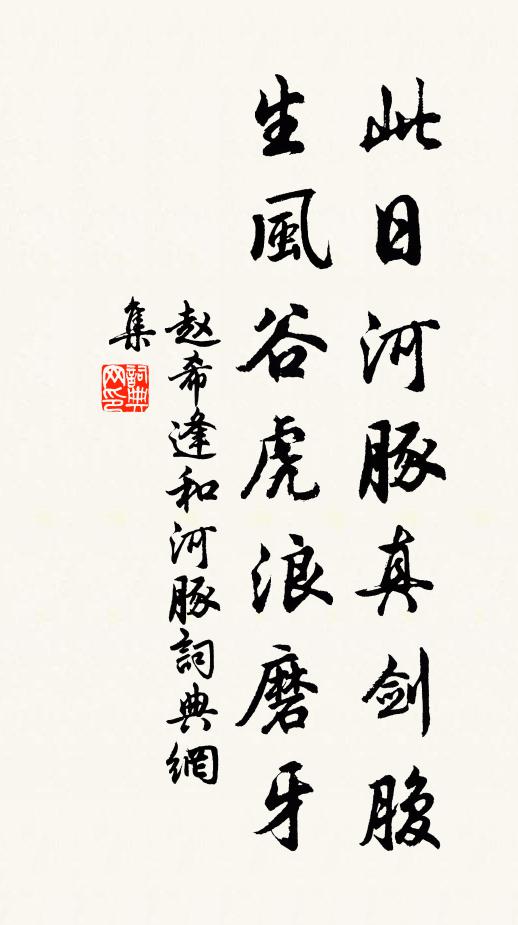 此日河豚真剑腹
生風谷虎浪磨牙
赵希逢和河豚詞典網
集
詞典
网印